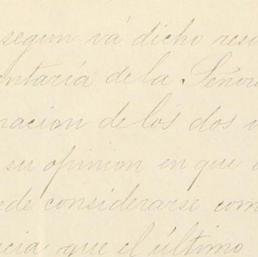 segun vá dicho resi
ntaría de la Señor
nacion de los dos
su opinion en que
de considerarse com
cia que el último